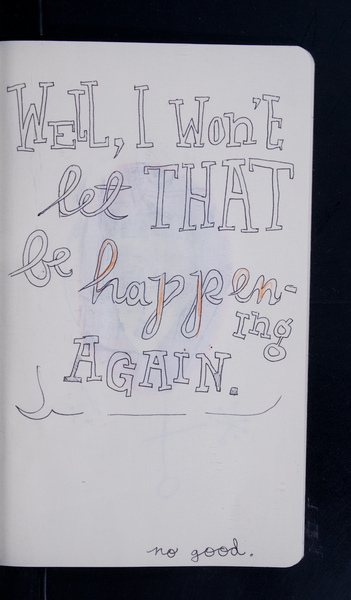 WELL, I Won't
let THAT
be happen-
ing
AGAIN.
no good.